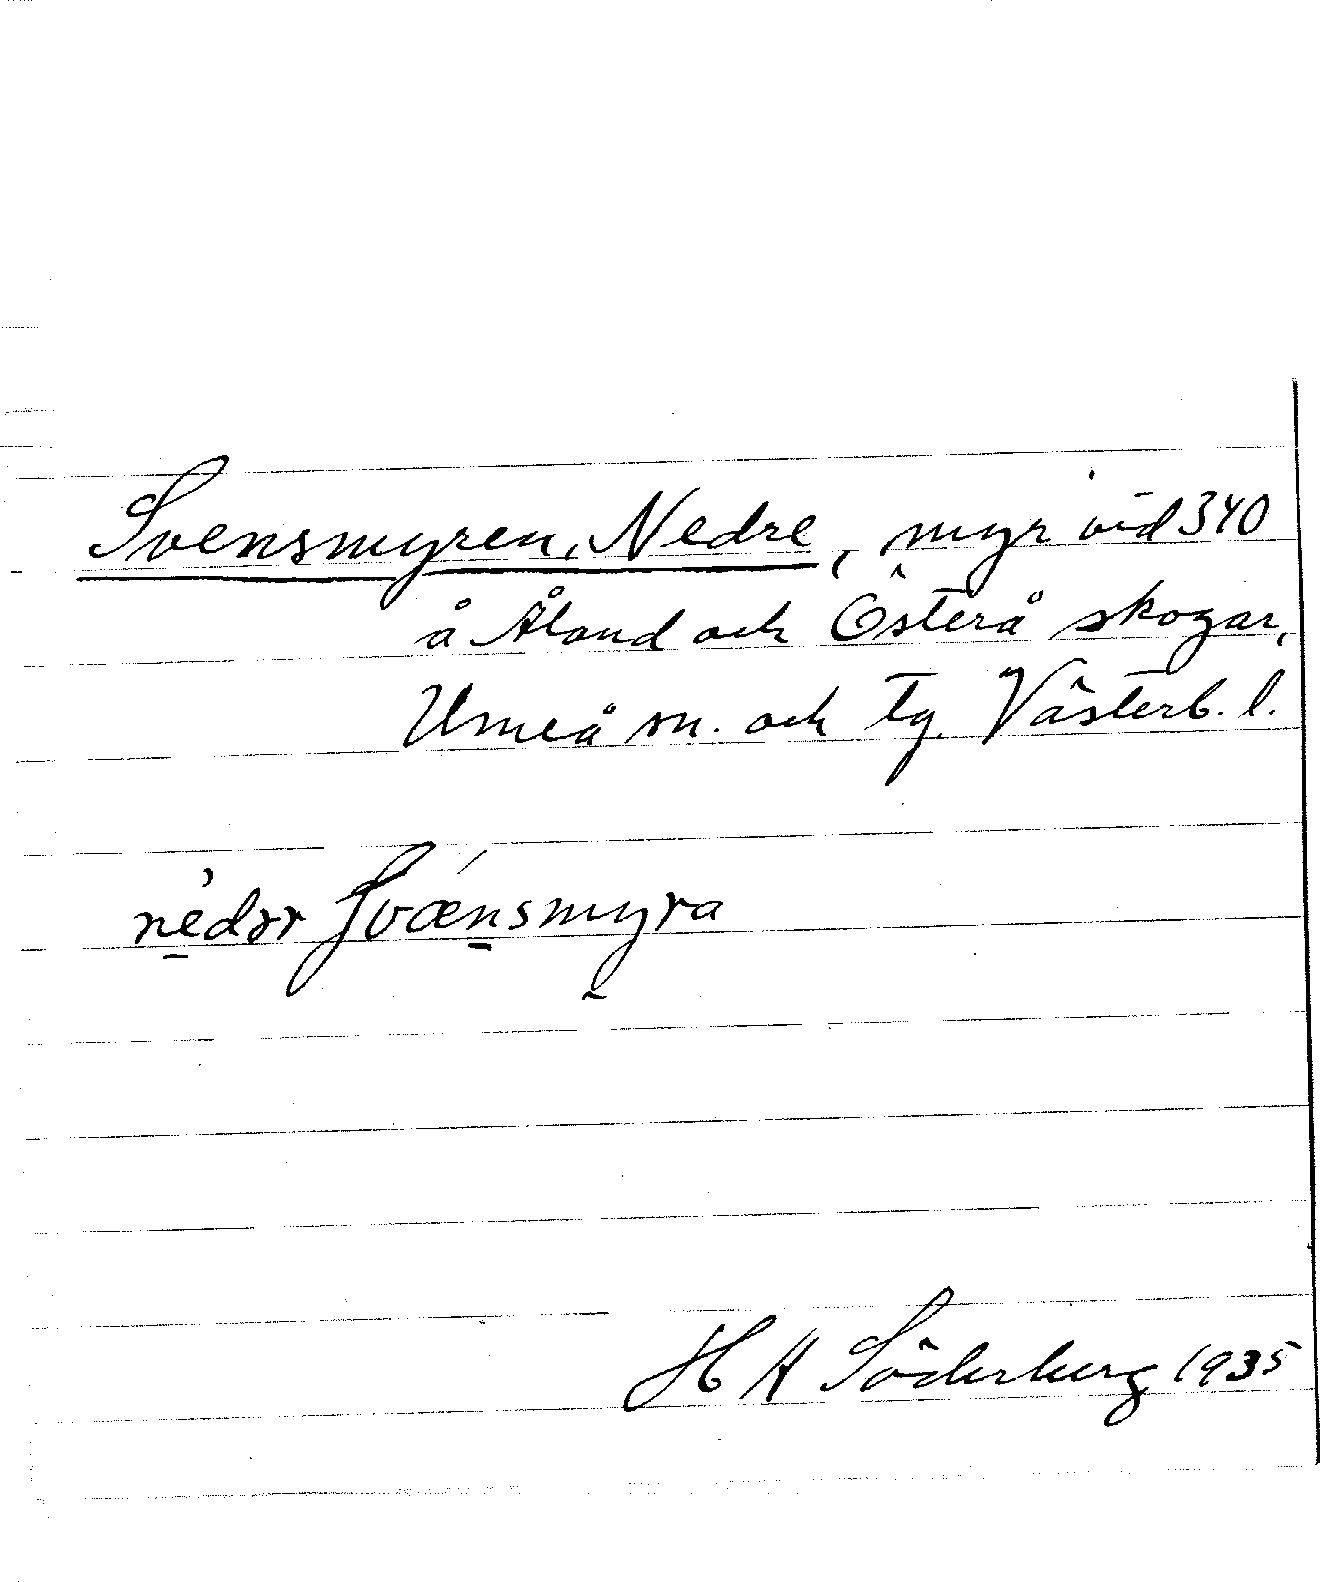 Svensmyren, Nedre, myr vid 340
å Åland och Österå skogar,
Umeå sn. och tg. Västerb. l.
nedər Svænsmyra
H A Söderberg 1935